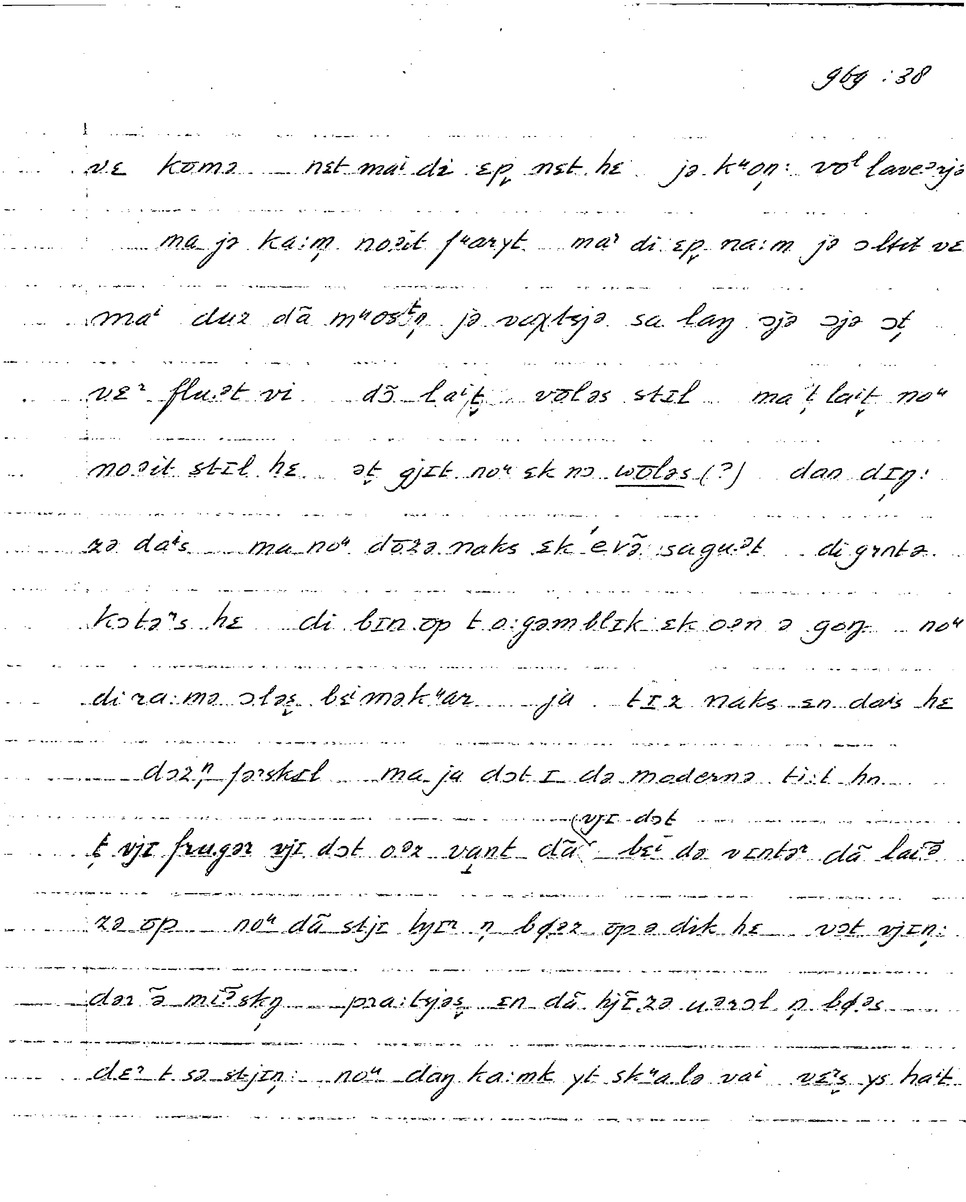 gbg : 38
vɛ komə nɛt maⁱ di ɛp̬ nɛt hɛ jə kᵘon̩: vōˡ laveᵊrjə
ma jə ka:m̩ noəit fᵘaryt maʳ di ɛp̬ na:m jə ɔltit vɛ
maⁱ duz dã mᵘosᵗn̩ jə vaχtsjə sa laŋ ɔjə ɔjə ɔt̬
vɛʳ fluᵊt vi dõ laⁱt̬ vōləs stɪl ma t̬ laⁱt̬ noᵘ
noəit stɪl hɛ ət̬ gjɪt noᵘ ɛk nɔ wōləs (?) dan dɪn̩:
zə daⁱs ma noᵘ dōzə naks ɛk 'evə̃ saguᵊt di grɪntə
kɔtəʳs hɛ di bɪn op t o:gəmblɪk ɛk oən ə goŋ noᵘ
di ra:mə ɔləs̬ bɛⁱməkᵘar ja tɪz naks ɛn daⁱs hɛ
dəzⁿ̩ fərskɪl ma ja dɔt ɪ də modernə ti:t hɛ
t̬ vjɪ frugər vjɪ dɔt oər va̬nt dã (vjɪ dɔt bɛⁱ də vɪntəʳ dã laiə̃
zə op noᵘ dã stjɪ hjɪʳ n̩ bøəz op ə dik hɛ vɔt vjɪn̩:
dər ə̃ miə̃skŋ̩ pra:tsjəs̬ ɛn dã hjɪ̃zə uərɔl n̩ bøəs
dɛʳ t sə stjɪn̩: noᵘ daŋ ka:mk yt skᵘalə vaⁱ vɛʳs̬ ys haⁱt